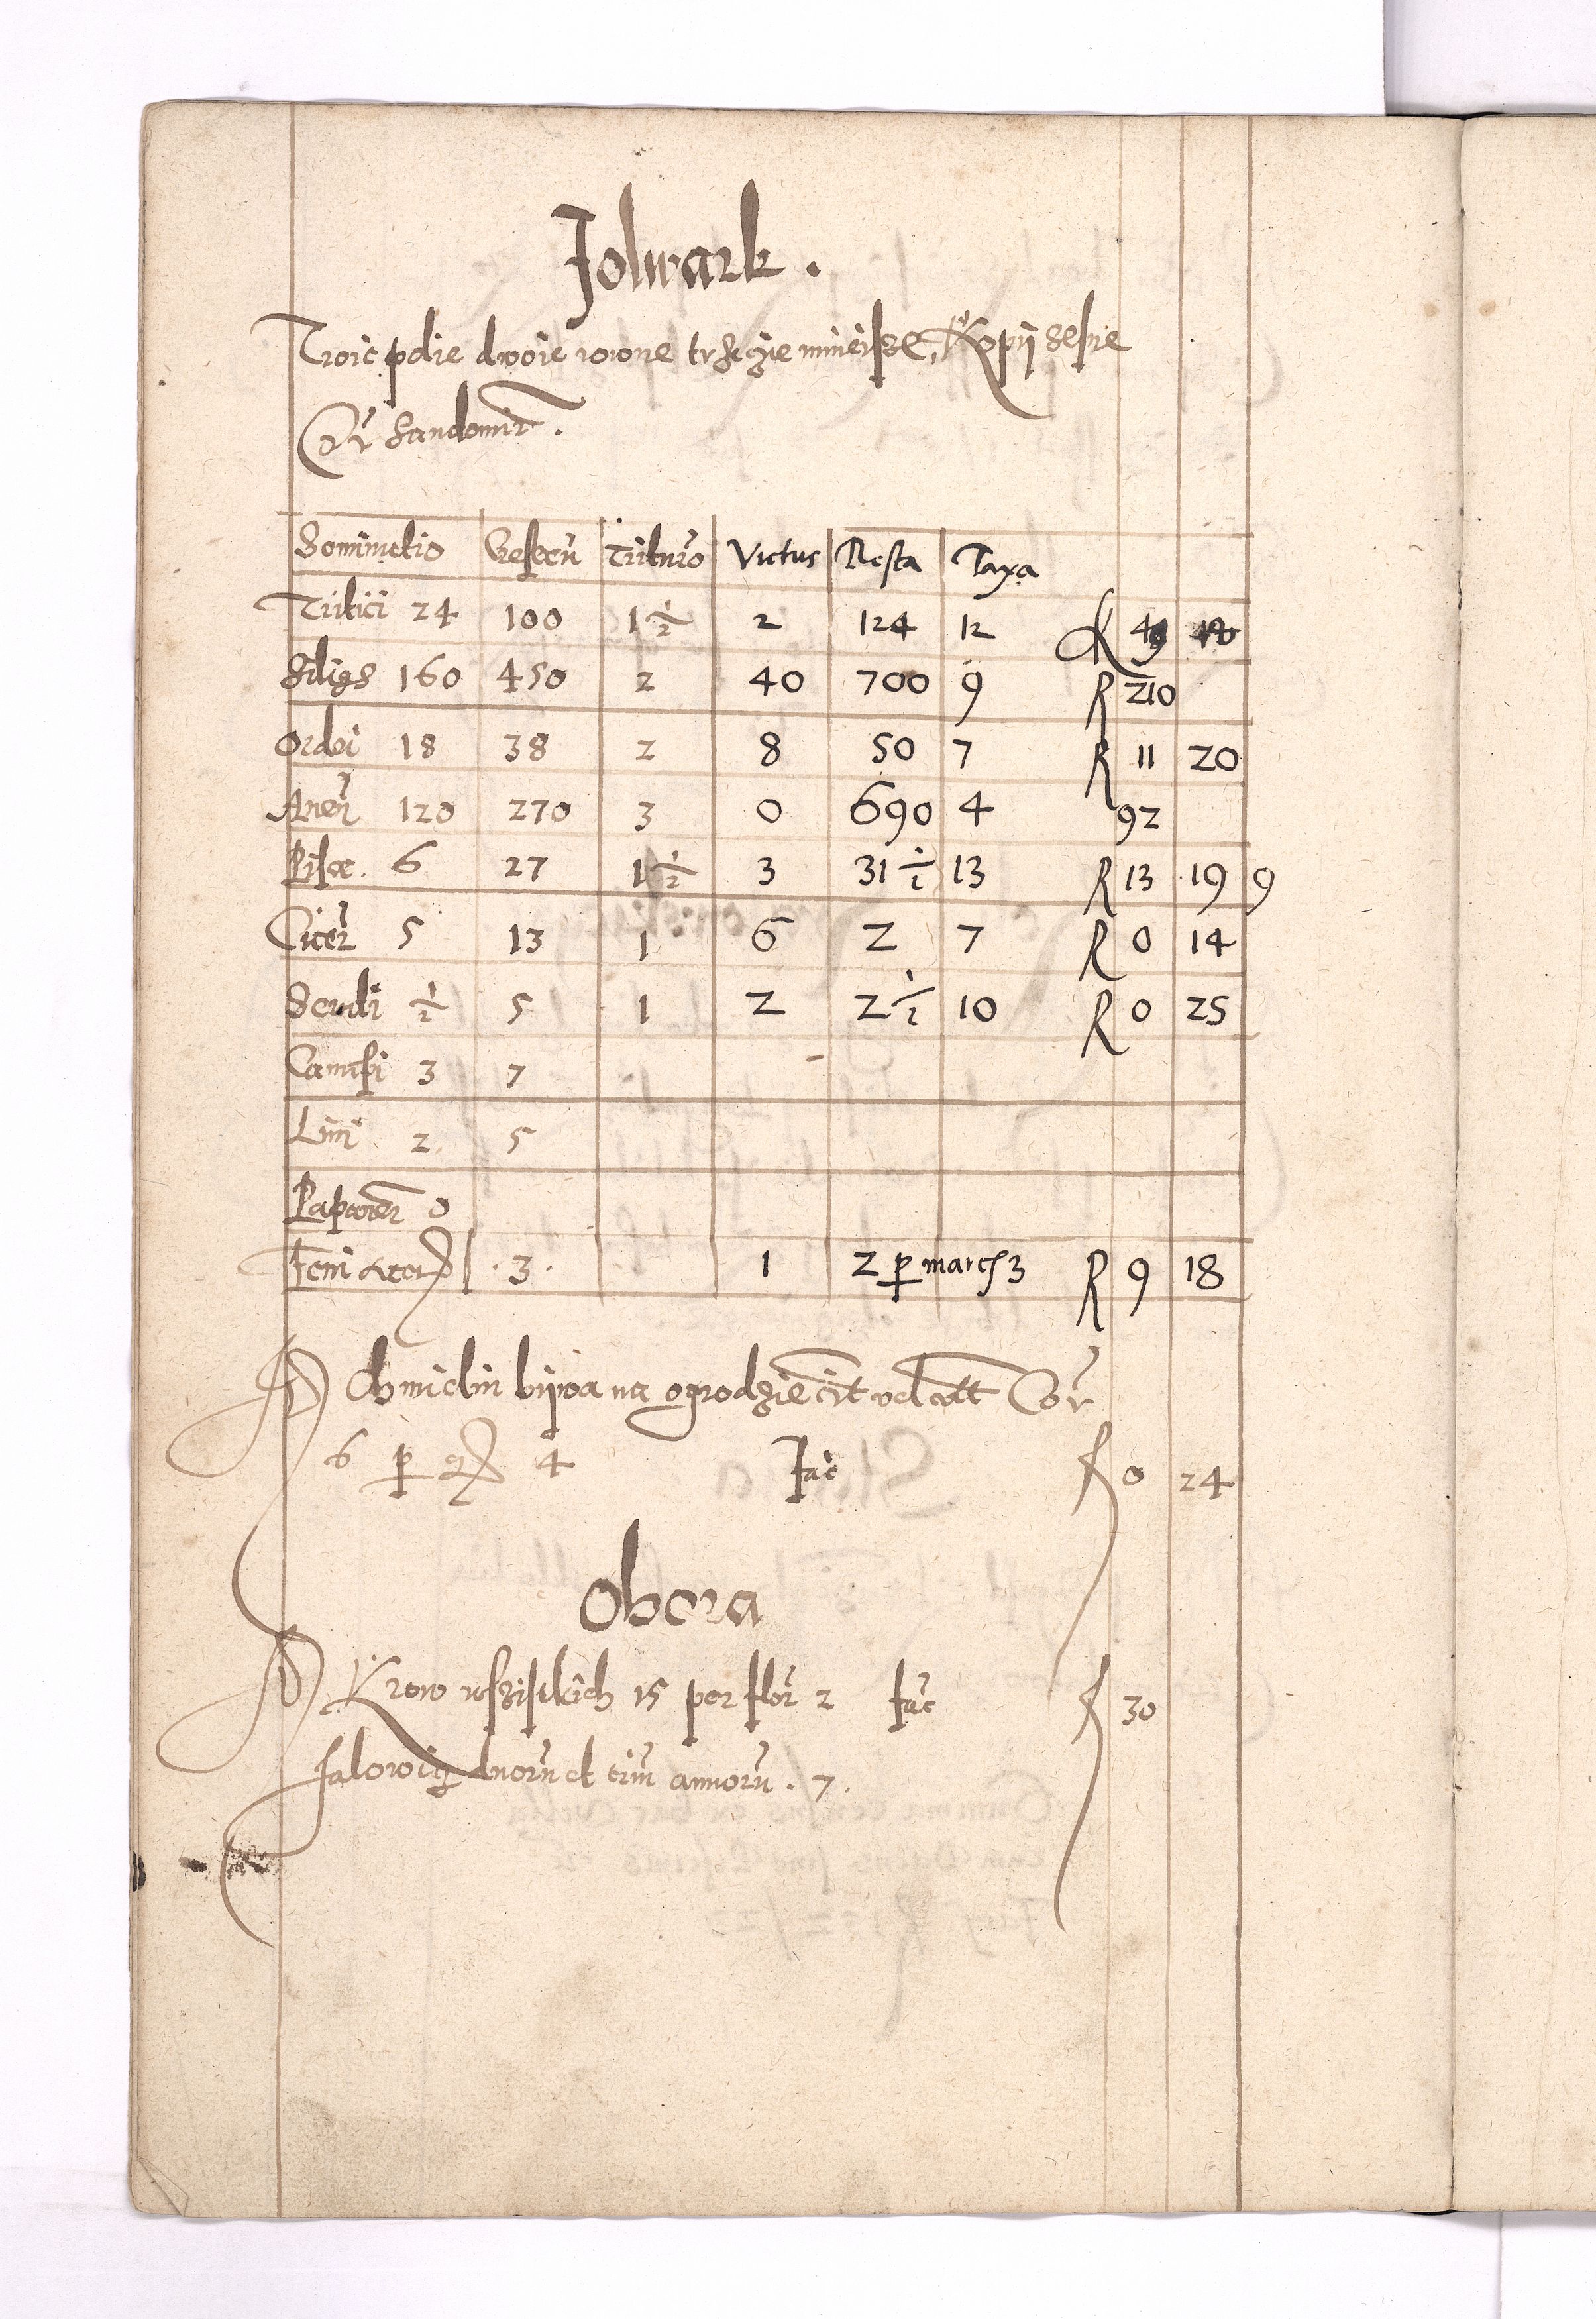 Folwark .
Troie polie dwoie rowne trzecie mnieisze, Kopij zesie
Cor Sandomir .
Seminatio Cresceñ Trituro Victus Resta Taxa
Tritici 24 100 1 1/2 2 124 12 R 49 18
Siligs 160 450 2 40 700 9 R 210
Ordei 18 38 2 8 50 7 R 11 20
Aven 120 270 3 0 690 4 92
Pisæ . 6 27 1 1/2 3 31 1/2 13 R 13 19 9
Cicer 5 13 1 6 2 7 R 0 14
1/2 5 1 2 2 1/2 10 R 0 25
Canapi 3 7
Lini 2 5
Papaver 0
Feni . 3 . 1 2 p marcs 3 R 9 18
Chmielu bijwa na ogrodzie Cor
6 p 4 fac f 0 24
Obora
Krow wszistkich 15 per flor 2 fac f 30
Jalowig duorũ et triũ annorũ . 7 .